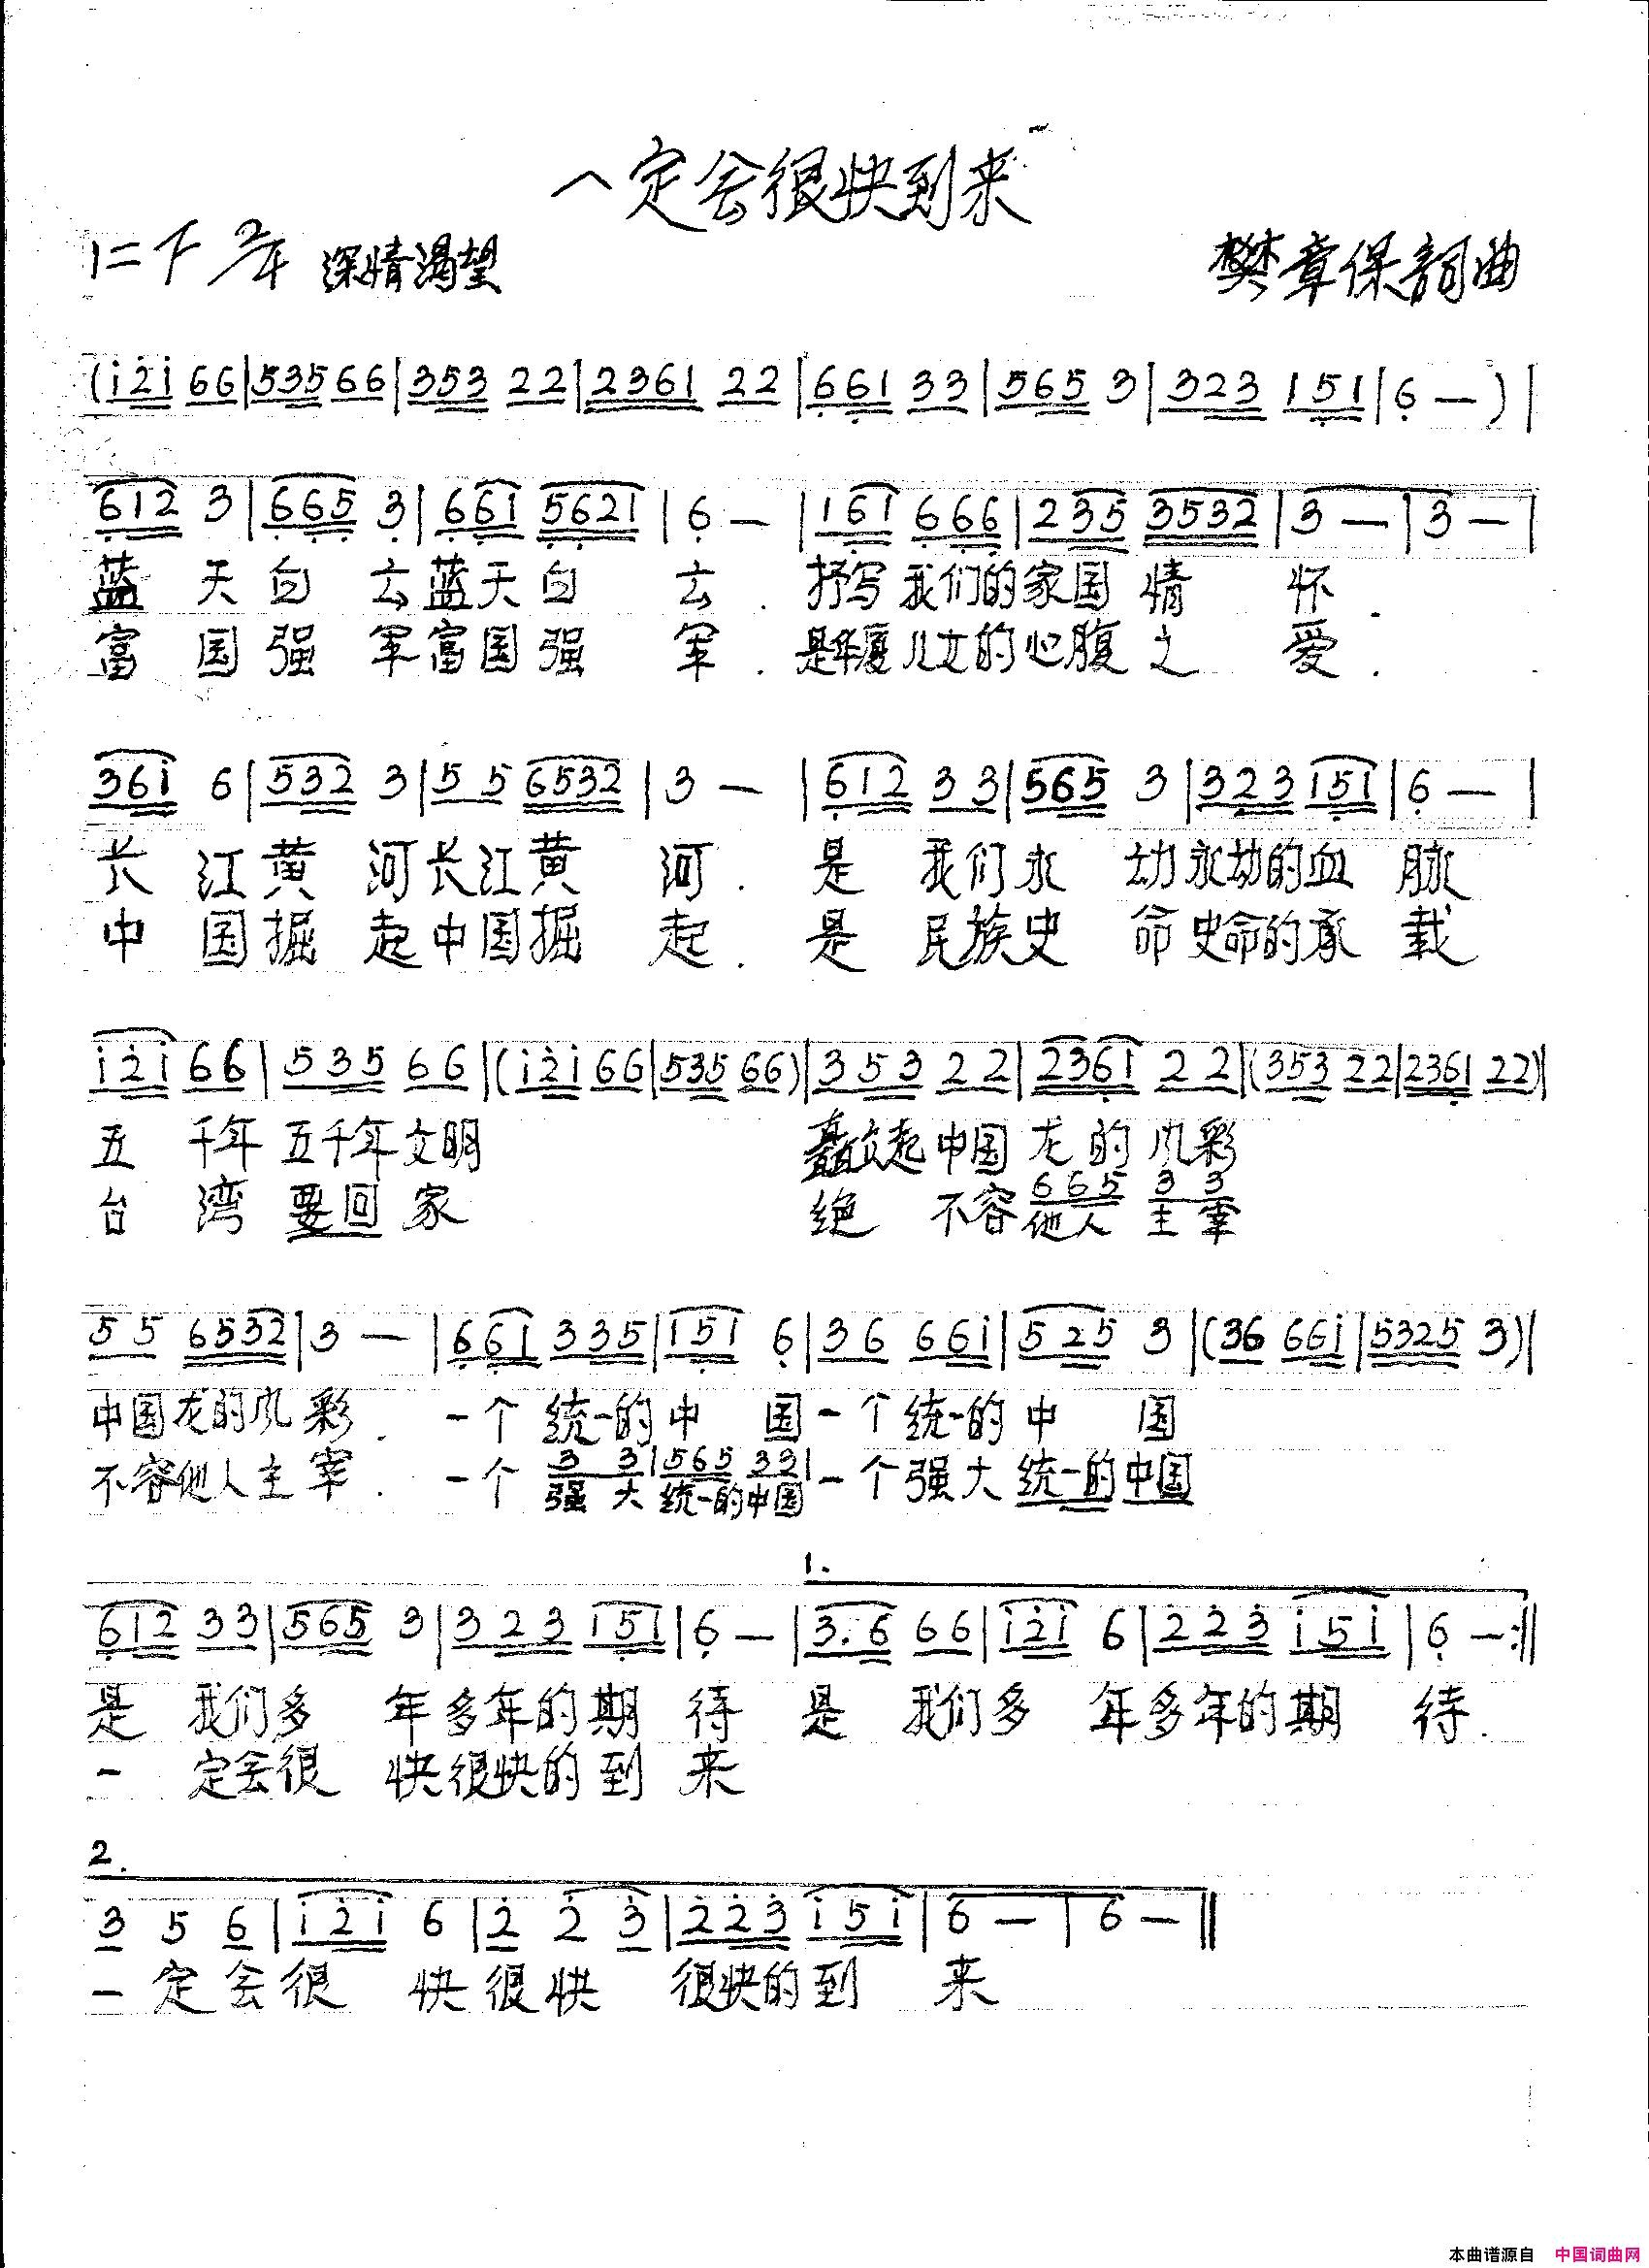 一定会很快到来
1=下 2/4 深情渴望 樊章保詞曲
(i̇2̇i̇ 66|535 66|353 22|2361 22|661 33|565 3|323 151|6 —)|
612 3|665 3|661 5621|6 —|161 666|235 3532|3 —|3 —|
蓝天白云蓝天白云.抒写我们的家国情怀.
富国强军富国强军.是华夏儿女的心腹之爱.
36i̇ 6|532 3|5 5 6532|3 —|612 33|565 3|323 151|6 —|
长江黄河长江黄河.是我们永动永动的血脉
中国掘起中国掘起.是民族史命史命的承载
i̇2̇i̇ 66|535 66|(i̇2̇i̇ 66|535 66)|353 22|2361 22|(353 22|2361 22)|
五千年五千年文明 矗立起中国龙的风彩
665 33
台湾要回家 绝不容他人主宰
55 6532|3 —|661 335|151 6|36 66i̇|525 3|(36 66i̇|5325 3)|
中国龙的风彩.一个统一的中国一个统一的中国
3 3|565 33|
不容他人主宰.一个强大统一的中国一个强大统一的中国
1.
612 33|565 3|323 151|6 —|3.6 66|i̇2̇i̇ 6|2̇2̇3̇ i̇5i̇|6 —:||
是我们多年多年的期待是我们多年多年的期待.
一定会很快很快的到来
2.
3 5 6|i̇2̇i̇ 6|2̇ 2̇ 3̇|2̇2̇3̇ i̇5i̇|6 —|6 —||
一定会很快很快很快的到来
本曲谱源自 中国词曲网